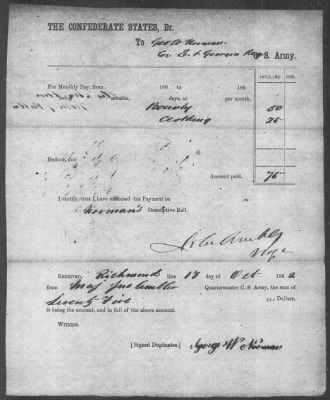 THE CONFEDERATE STATES, Dr.
To Geo W Norman
Co. E. 4 Georgia Reg C. S. Army.
DOLLARS. CTS.
For Monthly Pay, from 186 to 186
months, days, at per month,
Bounty 50
Clothing 25
Deduct, due
Amount paid. 75
I certify, that I have endorsed this Payment on
Norman's Descriptive Roll.
RECEIVED, Richmond this 17 day of Oct 1862
from Maj Jno Ambler Quartermaster C. S. Army, the sum of
Seventy Five Dollars.
it being the amount, and in full of the above account.
WITNESS.
[Signed Duplicates.] George W Norman